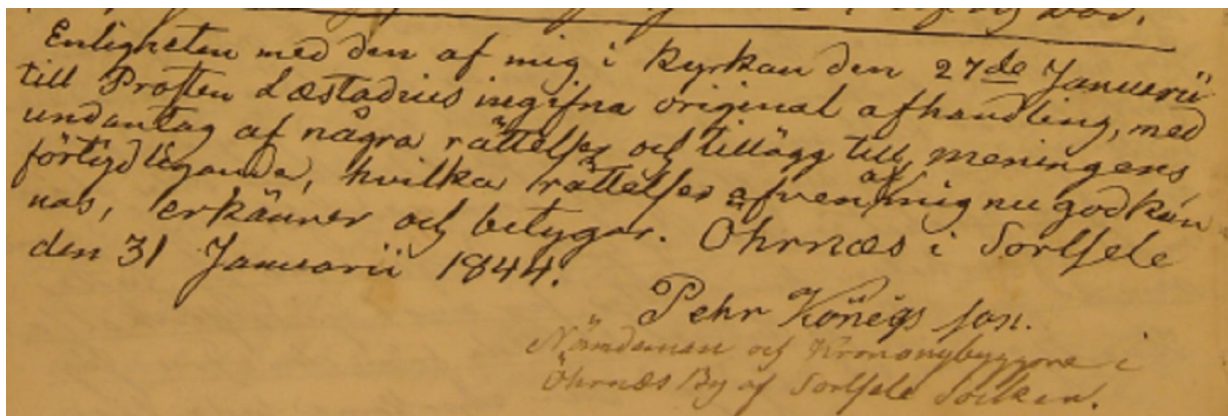 Enligheten med den af mig i Kyrkan den 27de Januarii
till Prosten Læstadius ingifna original afhandling, med
undantag af några rättelser och tillägg till meningens
förtydligande, hvilka rättelser äfven af mig nu godkän
nas, erkänner och betygar. Öhrnæs i Sorlsele
den 31 Januarii 1844.
Pehr Königsson.
Nämdeman och Krononybyggare i
Öhrnæs By af Sorlsele Socken.